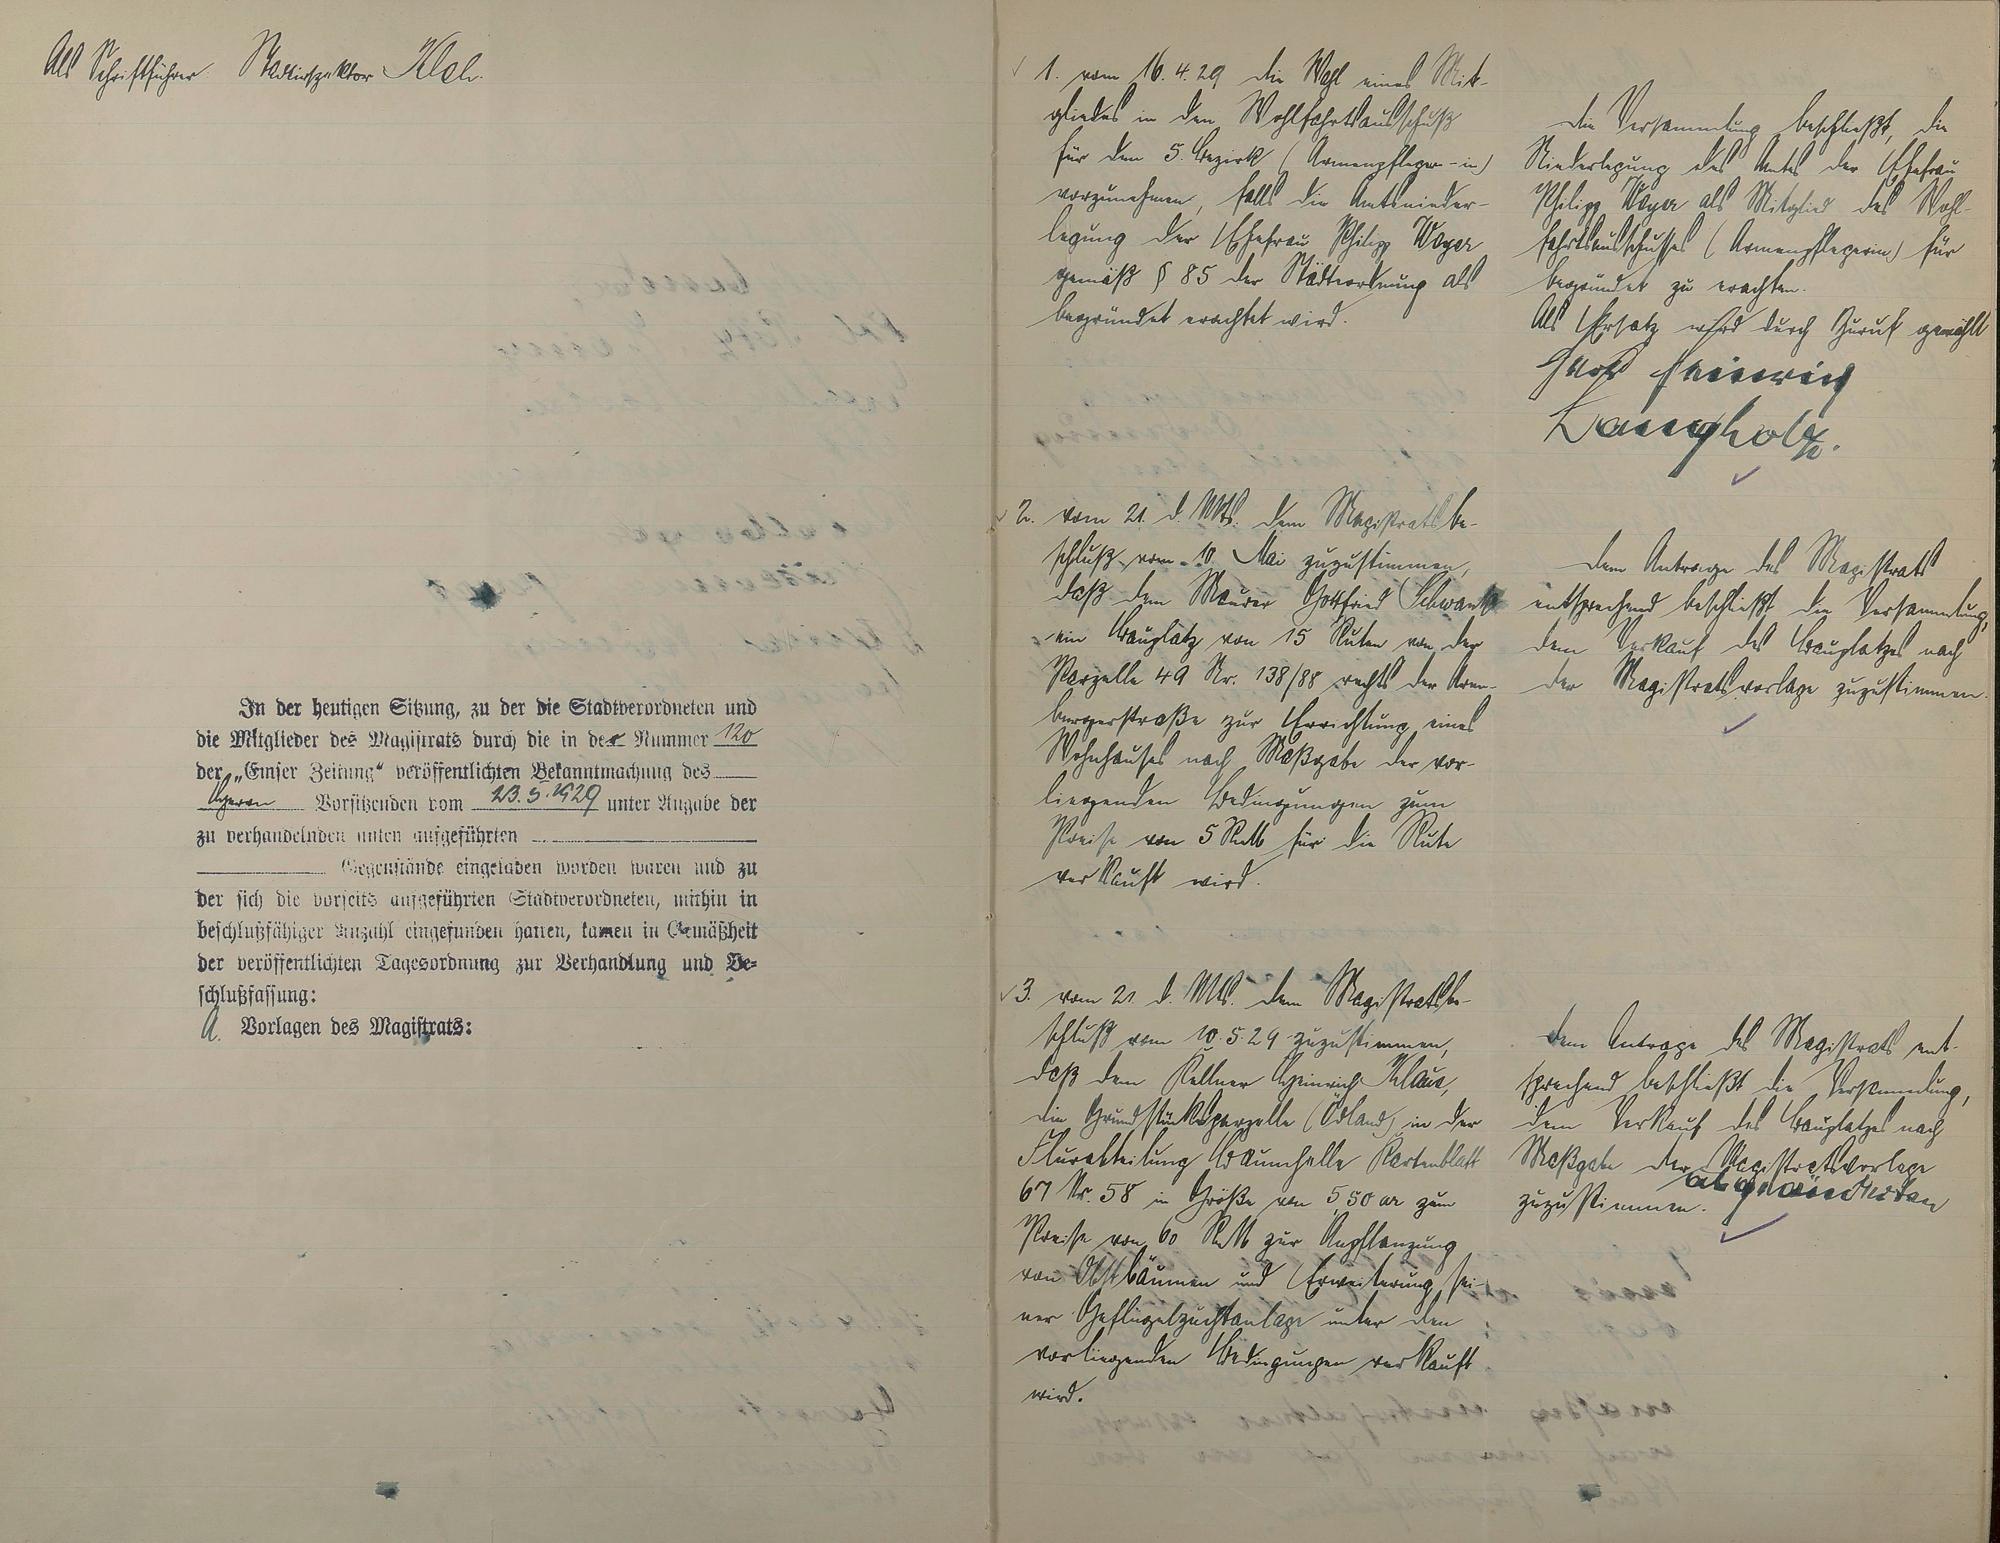 Als Schriftführer: Stadtinspektor
In der heutigen Sitzung, zu der die Stadtverordneten und
die Mitglieder des Magistrats durch die in der Nummer 120
der „Emser Zeitung“ veröffentlichten Bekanntmachung des
Herrn Vorsitzenden vom 23.5.1929 unter Angabe der
zu verhandelnden unten aufgeführten
Gegenstände eingeladen worden waren und zu
der sich die vorseits aufgeführten Stadtverordneten, mithin in
beschlußfähiger Anzahl eingefunden hatten, kamen in Gemäßheit
der veröffentlichten Tagesordnung zur Verhandlung und Be-
schlußfassung:
A. Vorlagen des Magistrats:
1. vom 16.4.29 die Wahl eines Mit-
gliedes in den Wohlfahrtsausschuß
für den 5. Bezirk (Armenpfleger-in)
vorzunehmen, falls die Amtsnieder-
legung der Ehefrau Philipp
gemäß § 85 der Städteordnung als
begründet erachtet wird.
die Versammlung beschließt, die
Niederlegung des Amtes der Ehefrau
Philipp als Mitglied des Wohl-
fahrtsausschusses (Armenpflegerin) für
begründet zu erachten.
Als Ersatz wird durch Zuruf gewählt
Heinrich
Langholz.
2. vom 21. d. Mts. dem Magistratsbe-
schluß vom 10. Mai zuzustimmen,
daß dem Maurer Gottfried Schwank
ein Bauplatz von 15 Ruten von der
Parzelle 49 Nr. 138/88 rechts der Aren-
bergerstraße zur Errichtung eines
Wohnhauses nach Maßgabe der vor-
liegenden Bedingungen zum
Preise von 5 RM für die Rute
verkauft wird.
dem Antrage des Magistrats
entsprechend beschließt die Versammlung,
dem Verkauf des Bauplatzes nach
der Magistratsvorlage zuzustimmen.
3. vom 21 d. Mts. dem Magistratsbe-
schluß vom 10.5.29 zuzustimmen,
daß dem Kellner Heinrich Klaus,
die Grundstücksparzelle (Ödland) in der
Flurabteilung Baumhelle Kartenblatt
67 Nr. 58 in Größe von 5,50 ar zum
Preise von 60 RM zur Anpflanzung
von Obstbäumen und Erweiterung sei-
ner Geflügelzuchtanlage unter den
vorliegenden Bedingungen verkauft
wird.
dem Antrage des Magistrats ent-
sprechend beschließt die Versammlung,
dem Verkauf des Bauplatzes nach
Maßgabe der Magistratsvorlage
abgeänderten
zuzustimmen.